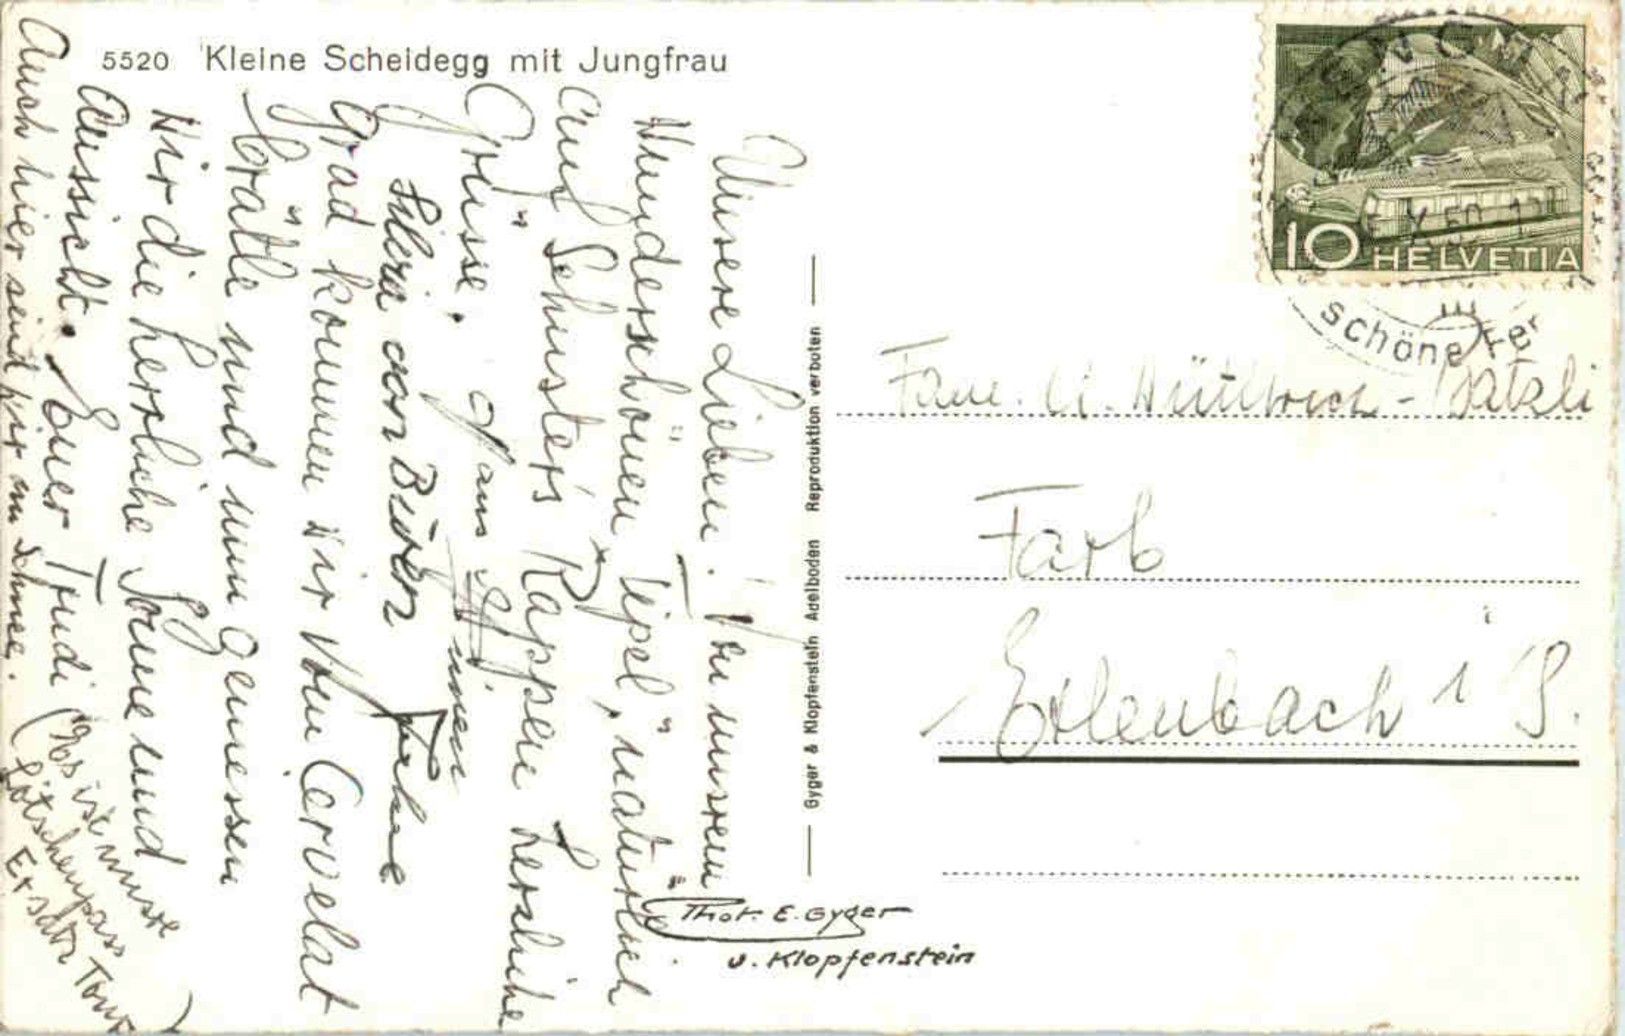 5520 Kleine Scheidegg mit Jungfrau
Unsere Lieben! Von unserem
wunderschönen Tipel, natürlich
auf Schuster's Rappen herzliche
Grüsse.
Grad kommen wir vom Cervelat
brätle und nun geniessen
wir die herrliche Sonne und
Aussicht. Euer Trudi
Auch hier sind wir im Schnee.
(Es ist unsere
Lötschenpass
Ersatz Tour)
Gyger & Klopfenstein Adelboden Reproduktion verboten
Phot. E. Gyger
u. Klopfenstein
10 HELVETIA
50
schöne Fer
Fam. Wüthrich-
Farb
Erlenbach i/S.